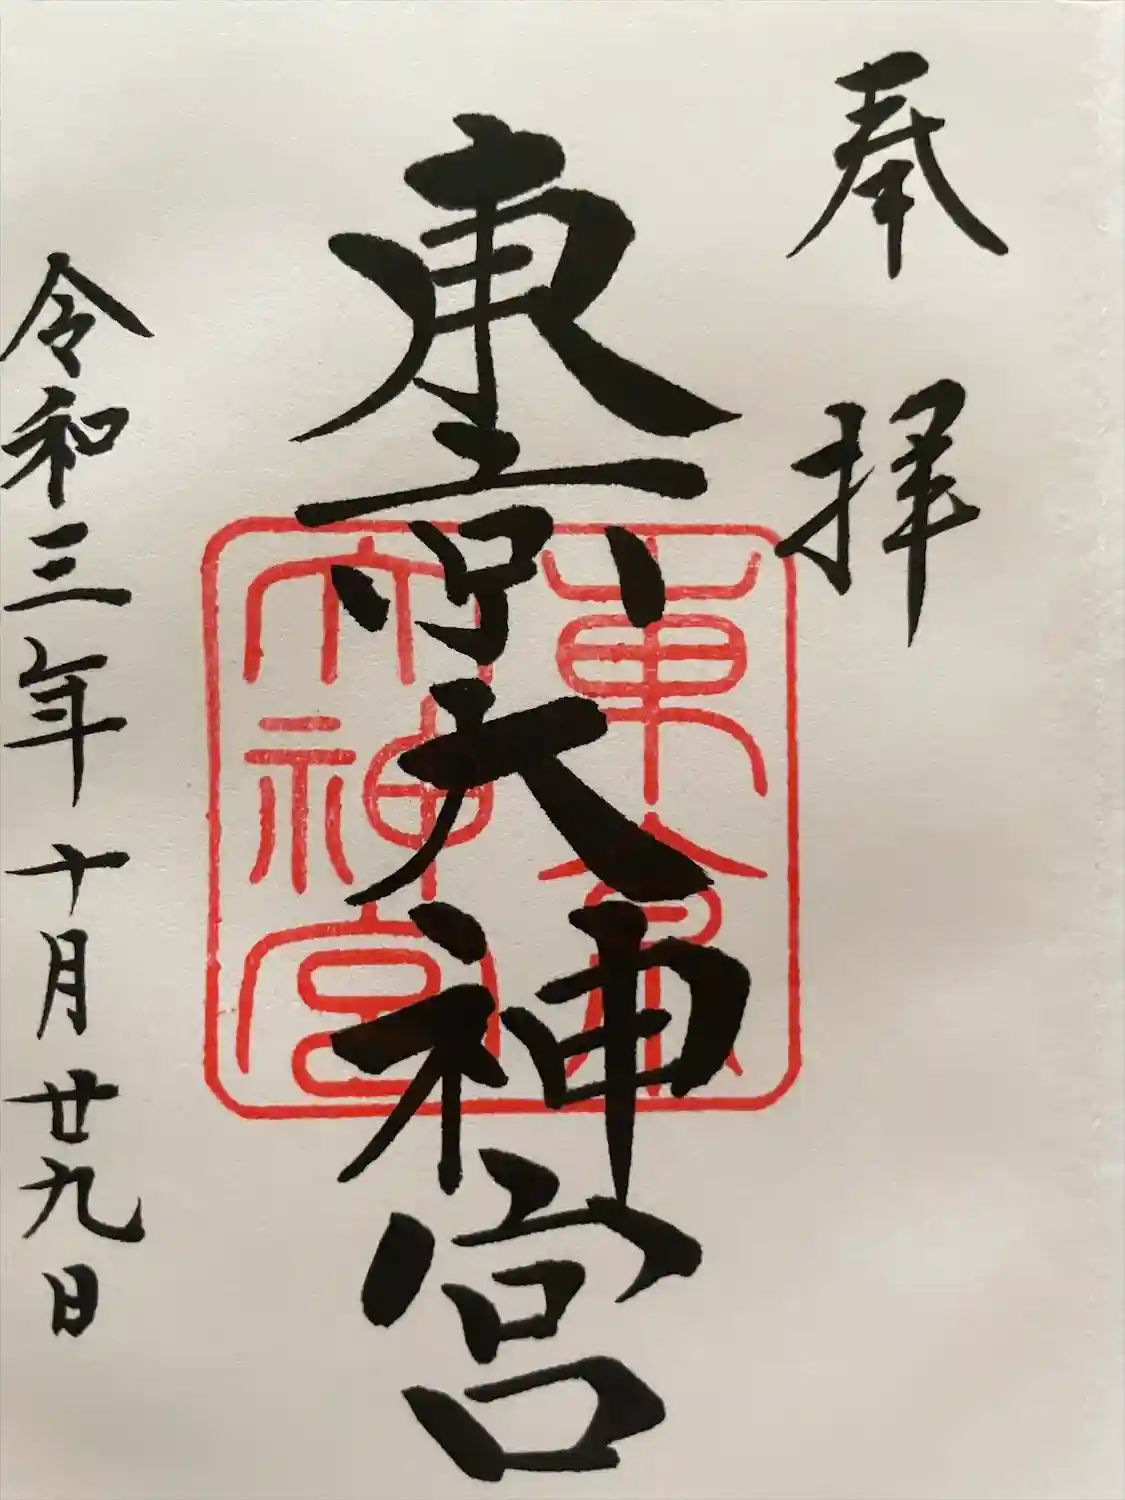 奉拝
東京大神宮
東京大神宮
令和三年十月廿九日